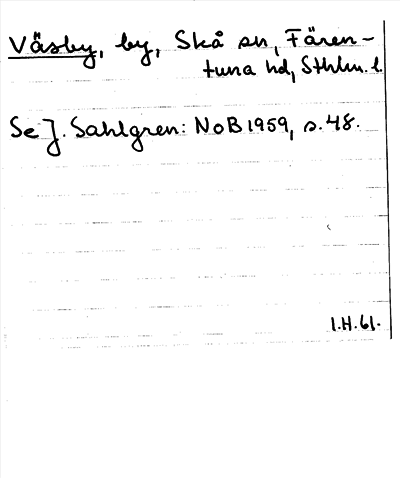 Väsby, by, Skå sn, Fären-
tuna hd, Sthlm. l.
Se J. Sahlgren: NoB 1959, s. 48.
I.H.61.